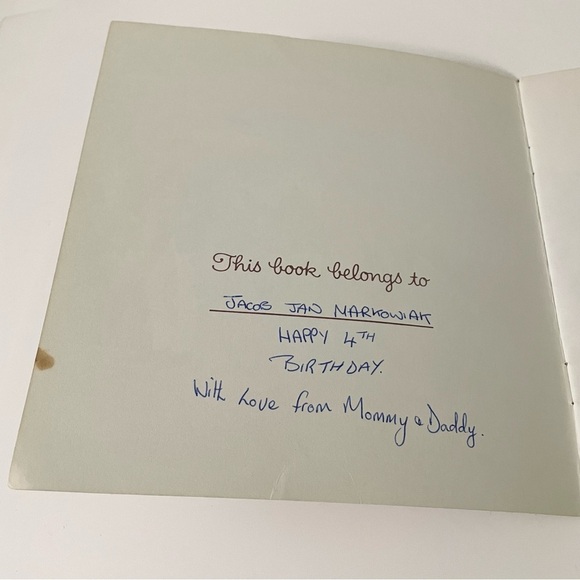 This book belongs to
JACOB JAN MARKOWIAK
HAPPY 4TH
BIRTHDAY.
With Love from Mommy & Daddy.